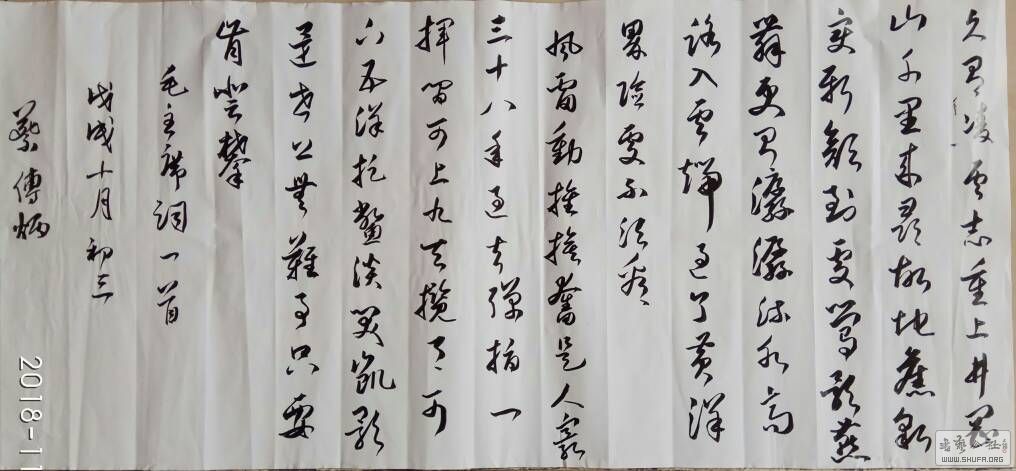 久有凌云志重上井岡
山千里来尋故地舊貌
变新颜到处鶯歌燕
舞更有潺潺流水高
路入云端过了黄洋
界险处不须看
風雷動旌旗奮是人寰
三十八年过去彈指一
揮間可上九天攬月可
下五洋捉鳖谈笑凱歌
還世上無難事只要
肯登攀
毛主席詞一首
戊戌十月初三
蔡傳炳
2018-11
WWW.SHUFA.ORG